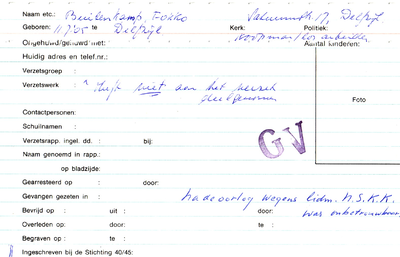 Naam etc.: Beukenkamp, Fokko
Geboren: 11705 te Delfzijl Kerk: Politiek:
Ongehuwd/gehuwd met: Koopman/los arbeider Aantal kinderen:
Huidig adres en telef.nr.:
Verzetsgroep :
Verzetswerk : niet aan het verzet
deelgenomen
Foto
Contactpersonen:
Schuilnaam :
Verzetsrapp. ingel. dd. : bij:
GV
Naam genoemd in rapp.:
op bladzijde:
Gearresteerd op : door:
Gevangen gezeten in : na de oorlog wegens lidm. N.S.K.K.
Bevrijd op : uit : door: was onbetrouwbaar
Overleden op: door: te :
Begraven op : te :
Ingeschreven bij de Stichting 40/45: